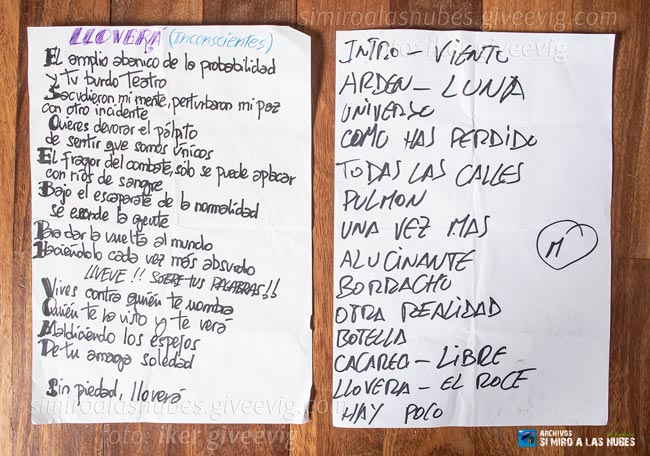 LLOVERÁ (INCONSCIENTES)
El amplio abanico de la probabilidad
y tu burdo teatro
Sacudieron mi mente, perturbaron mi paz
con otro incidente
Quieres devorar el pálpito
de sentir que somos únicos
El fragor del combate, sólo se puede aplacar
con ríos de sangre
Bajo el escaparate de la normalidad
se esconde la gente
Para dar la vuelta al mundo
Haciéndolo cada vez más absurdo
LLUEVE!! SOBRE TUS PALABRAS!!
Vives contra quién te nombra
Quién te ha visto y te verá
Maldiciendo los espejos
De tu amarga soledad
Sin piedad, lloverá
INTRO - VIENTO
ARDEN - LUNA
UNIVERSO
COMO HAS PERDIDO
TODAS LAS CALLES
PULMON
UNA VEZ MAS
ALUCINANTE
BORRACHO
OTRA REALIDAD
BOTELLA
CACAREO - LIBRE
LLOVERA - EL ROCE
HAY POCO
M
simiroalasnubes.giveevig.com
foto: iker giveevig
simiroalasnubes.giveevig.com
foto: iker giveevig
ARCHIVOS
SI MIRO A LAS NUBES